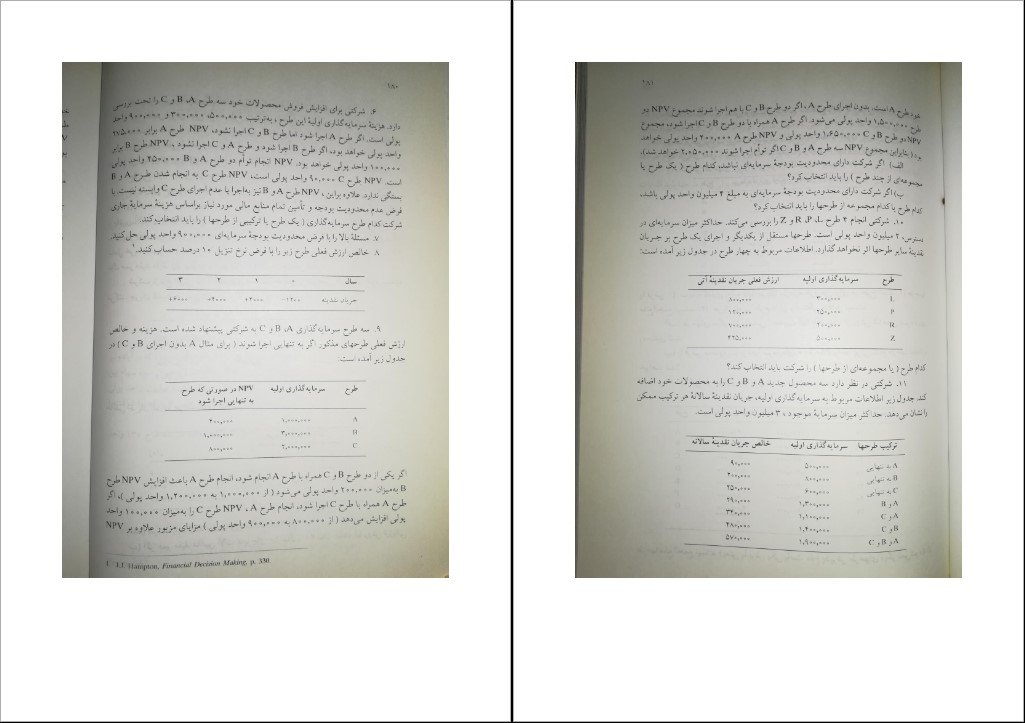 ۱۸۰
۶. شرکتی برای افزایش فروش محصولات خود سه طرح B ،A و C را تحت بررسی
دارد. هزینهٔ سرمایه‌گذاری اولیهٔ این طرح ، به‌ترتیب ۵۰۰,۰۰۰، ۳۰۰,۰۰۰ و ۹۰۰,۰۰۰ واحد
پولی است. اگر طرح A اجرا شود اما طرح B و C اجرا نشود، NPV طرح A برابر
واحد پولی خواهد بود. اگر طرح B اجرا شود و طرح A و C اجرا نشود ، NPV طرح B برابر
۱۰۰,۰۰۰ واحد پولی خواهد بود. NPV انجام توأم دو طرح A و B ۲۵۰,۰۰۰ واحد پولی
است. NPV طرح C ۹۰,۰۰۰ واحد پولی است، NPV طرح C به انجام شدن طرح A و B
بستگی ندارد. علاوه براین، NPV طرح A و B نیز به‌اجرا یا عدم اجرای طرح C وابسته نیست. با
فرض عدم محدودیت بودجه و تأمین تمام منابع مالی مورد نیاز براساس هزینهٔ سرمایهٔ جاری
شرکت کدام طرح سرمایه‌گذاری ( یک طرح یا ترکیبی از طرحها ) را باید انتخاب کند.
۷. مسئلهٔ بالا را با فرض محدودیت بودجهٔ سرمایه‌ای ۹۰۰,۰۰۰ واحد پولی حل‌کنید.
۸. خالص ارزش فعلی طرح زیر را با فرض نرخ تنزیل ۱۰ درصد حساب کنید.¹
سال ۰ ۱ ۲ ۳
جریان نقدینه −۱۲۰۰ +۲۰۰۰ −۴۰۰۰ +۶۰۰۰
۹. سه طرح سرمایه‌گذاری B ،A و C به شرکتی پیشنهاد شده است. هزینه و خالص
ارزش فعلی طرحهای مذکور اگر به تنهایی اجرا شوند ( برای مثال A بدون اجرای B و C ) در
جدول زیر آمده است:
طرح سرمایه‌گذاری اولیه NPV در صورتی که طرح
به تنهایی اجرا شود
A ۱,۰۰۰,۰۰۰ ۲۰۰,۰۰۰
B ۳,۰۰۰,۰۰۰ ۱,۰۰۰,۰۰۰
C ۲,۰۰۰,۰۰۰ ۸۰۰,۰۰۰
اگر یکی از دو طرح B و C همراه با طرح A انجام شود، انجام طرح A باعث افزایش NPV طرح
B به‌میزان ۲۰۰,۰۰۰ واحد پولی می‌شود ( از ۱,۰۰۰,۰۰۰ به ۱,۲۰۰,۰۰۰ واحد پولی )، اگر
طرح A همراه با طرح C اجرا شود، انجام طرح A ، NPV طرح C را به‌میزان ۱۰۰,۰۰۰ واحد
پولی افزایش می‌دهد ( از ۸۰۰,۰۰۰ به ۹۰۰,۰۰۰ واحد پولی ) مزایای مزبور علاوه بر NPV
1. J.J. Hampton, Financial Decision Making, p. 330.
۱۸۱
خود طرح A است. بدون اجرای طرح A ، اگر دو طرح B و C با هم اجرا شوند مجموع NPV دو
طرح ۱,۵۰۰,۰۰۰ واحد پولی می‌شود. اگر طرح A همراه با دو طرح B و C اجرا شود، مجموع
NPV دو طرح B و C ۱,۶۵۰,۰۰۰ واحد پولی و NPV طرح A ۲۰۰,۰۰۰ واحد پولی خواهد
بود ( بنابراین مجموع NPV سه طرح A و B و C اگر توأم اجرا شوند ۲,۰۵۰,۰۰۰ خواهد شد).
الف) اگر شرکت دارای محدودیت بودجهٔ سرمایه‌ای نباشد، کدام طرح ( یک طرح یا
مجموعه‌ای از چند طرح ) را باید انتخاب کرد؟
ب) اگر شرکت دارای محدودیت بودجهٔ سرمایه‌ای به مبلغ ۴ میلیون واحد پولی باشد،
کدام طرح یا کدام مجموعه از طرحها را باید انتخاب کرد؟
۱۰. شرکتی انجام ۴ طرح R ،P ،L و Z را بررسی می‌کند. حداکثر میزان سرمایه‌ای در
دسترس، ۲ میلیون واحد پولی است. طرحها مستقل از یکدیگر و اجرای یک طرح بر جریان
نقدینهٔ سایر طرحها اثر نخواهد گذارد. اطلاعات مربوط به چهار طرح در جدول زیر آمده است:
طرح سرمایه‌گذاری اولیه ارزش فعلی جریان نقدینهٔ آتی
L ۳۰۰,۰۰۰ ۸۰۰,۰۰۰
P ۲۵۰,۰۰۰ ۱۲۰,۰۰۰
R ۲۰۰,۰۰۰ ۷۰۰,۰۰۰
Z ۵۰۰,۰۰۰ ۴۲۵,۰۰۰
کدام طرح ( یا مجموعه‌ای از طرحها ) را شرکت باید انتخاب کند؟
۱۱. شرکتی در نظر دارد سه محصول جدید A و B و C را به محصولات خود اضافه
کند. جدول زیر اطلاعات مربوط به سرمایه‌گذاری اولیه، جریان نقدینهٔ سالانهٔ هر ترکیب ممکن
را نشان می‌دهد. حداکثر میزان سرمایهٔ موجود ، ۳ میلیون واحد پولی است.
ترکیب طرحها سرمایه‌گذاری اولیه خالص جریان نقدینهٔ سالانه
A به تنهایی ۵۰۰,۰۰۰ ۹۰,۰۰۰
B به تنهایی ۸۰۰,۰۰۰ ۲۰۰,۰۰۰
C به تنهایی ۶۰۰,۰۰۰ ۲۵۰,۰۰۰
A و B ۱,۳۰۰,۰۰۰ ۲۹۰,۰۰۰
A و C ۱,۱۰۰,۰۰۰ ۳۴۰,۰۰۰
B و C ۱,۴۰۰,۰۰۰ ۴۸۰,۰۰۰
A و B و C ۱,۹۰۰,۰۰۰ ۵۷۰,۰۰۰